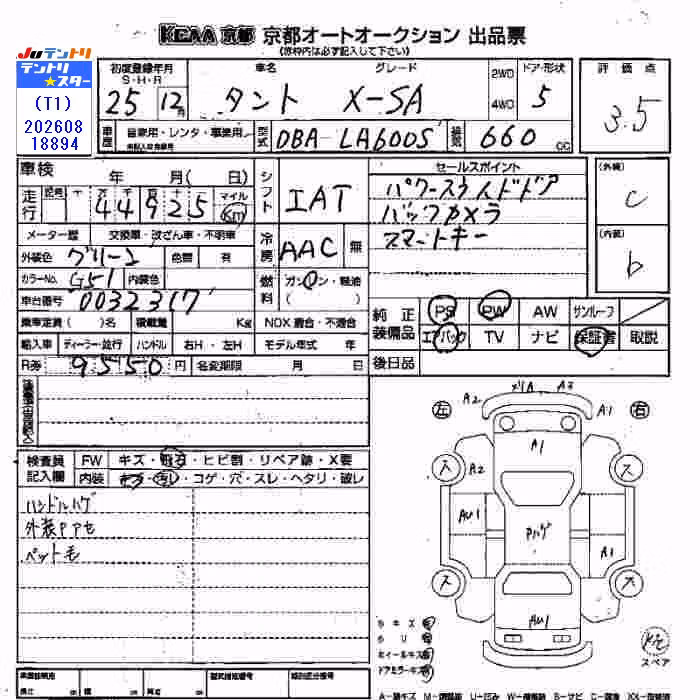 KCAA 京都 京都オートオークション 出品票
(原枠内は必ず記入して下さい)
JUテントリ
テントリ★スター
(T1)
202608
18894
初度登録年月
S・H・R
25 12月
車名 グレード
タント X-SA
2WD
4WD
ドア・形状
5
評価点
3.5
車歴
自家用・レンタ・事業用
型式
DBA-LA600S
排気
660 cc
車検 年 月(日)
走行
記号 十 万 千 百 十
44925
マイル
Km
メーター歴 交換車・改ざん車・不明車
外装色 グリーン 色替 有
カラーNo. G51 内装色
車台番号 0032317
乗車定員( )名 積載量 Kg NOX 適合・不適合
輸入車 ディーラー・並行 ハンドル 右H・左H モデル年式 年
R券 9550円 名変期限 月 日
シフト IAT
冷房 AAC 無
燃料 ガソリン・軽油
( )
セールスポイント
パワースライドドア
バックカメラ
スマートキー
(外装)
C
(内装)
b
純正装備品
PS PW AW サンルーフ
エアバック TV ナビ 保証書 取説
後日品
検査員記入欄
FW キズ・飛石・ヒビ割・リペア跡・X要
内装 キズ・汚れ・コゲ・穴・スレ・ヘタリ・破レ
ハンドルハゲ
外装Pアセ
ペット毛
左 右
A2 メリA A3
A1
A1
A2
AU1
Pハゲ
A1
AU1
小キズ有
小U有
ホイールキズ有
ドアミラーキズ有
スペア